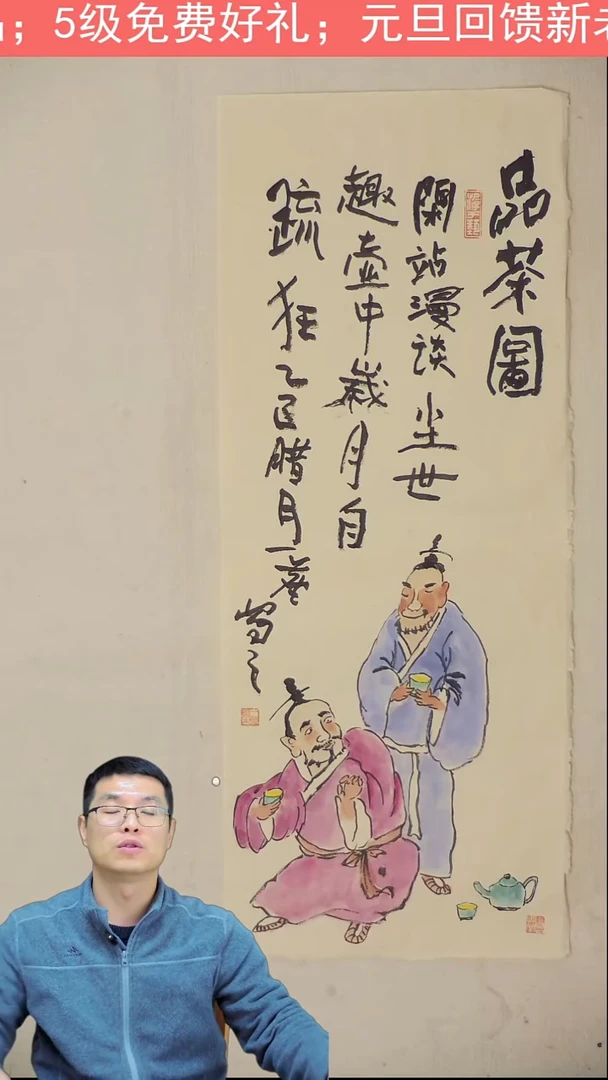 ；5级免费好礼；元旦回馈新老
品茶圖
閑站漫谈尘世
趣壶中歲月自
疏狂乙巳腊月一塗